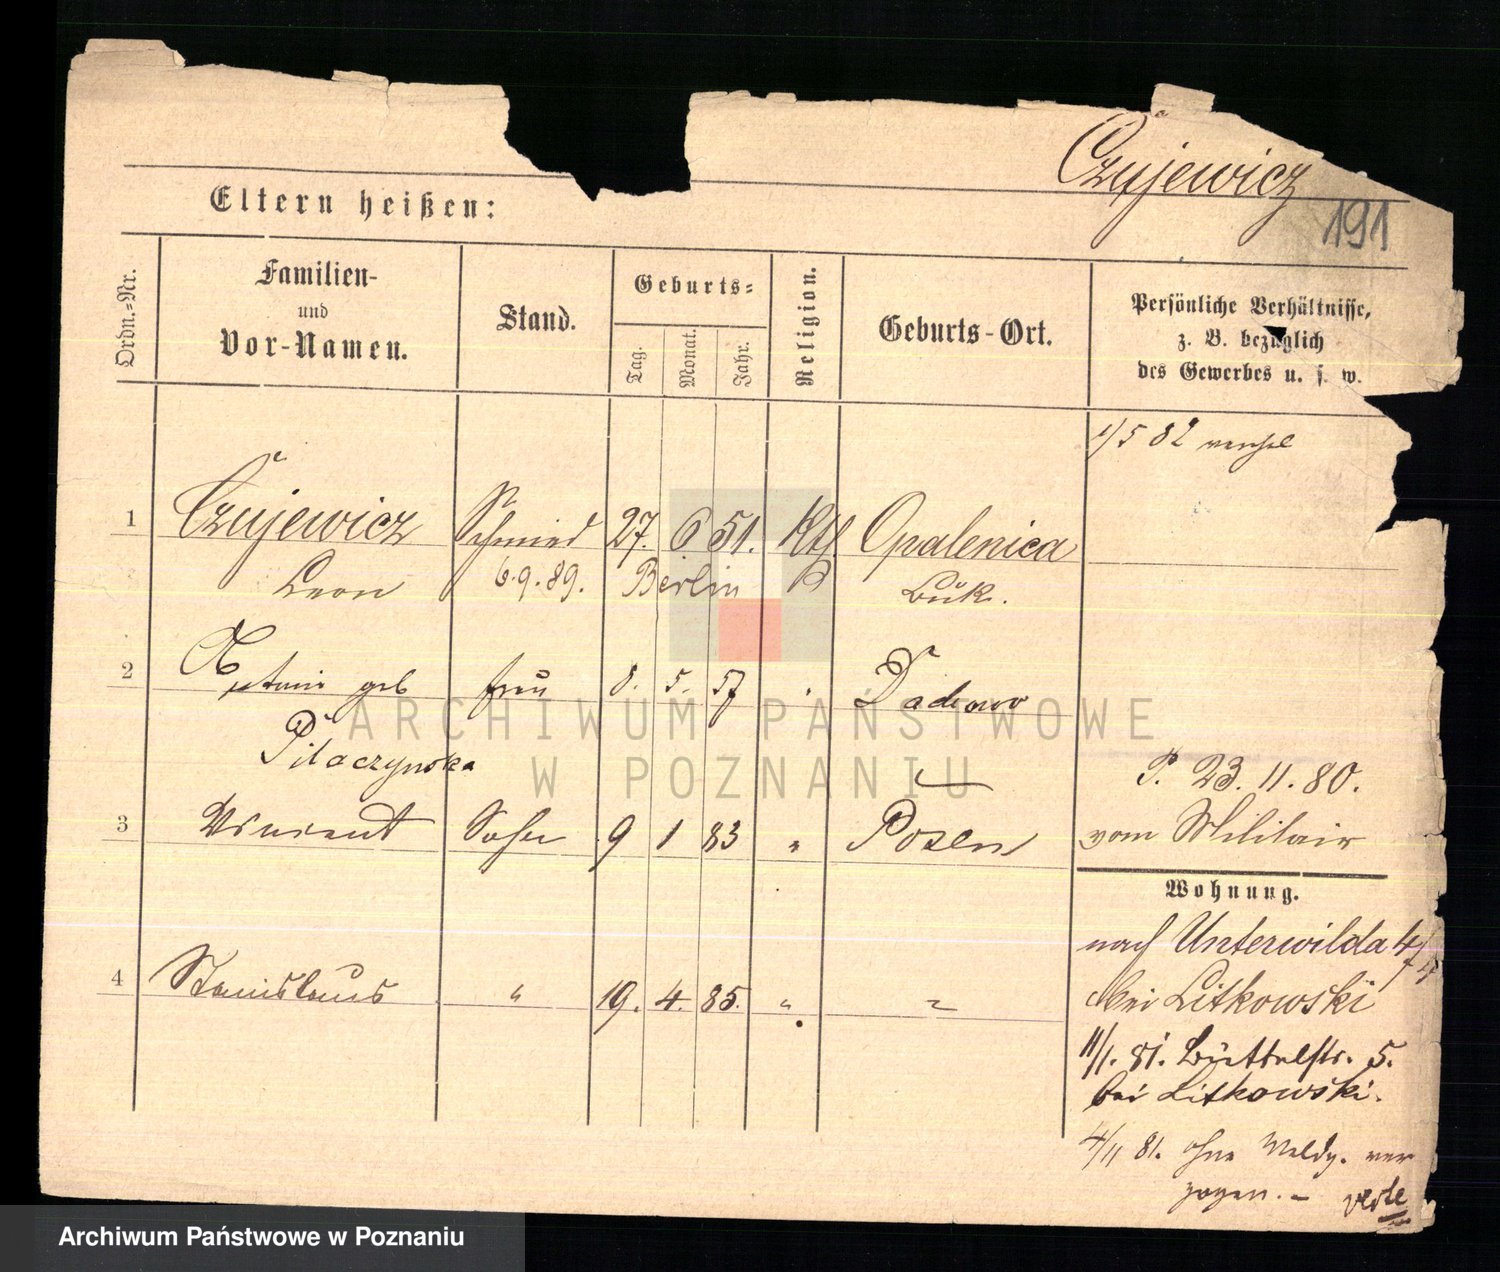 Czujewicz
191
Eltern heißen:
Ordn.=Nr.
Familien-
und
Vor-Namen.
Stand.
Geburts=
Tag.
Monat.
Jahr.
Religion.
Geburts-Ort.
Persönliche Verhältnisse,
z. B. bezüglich
des Gewerbes u. s. w.
1/5 82
1 Czujewicz Schmied 27. 6 51. Kth Opalenica
Leon 6.9.89. Berlin Buk.
2 geb frau 8. 5. 57
Pilaczynska
P. 23.11.80.
3 Vincent Sohn 9 1 83 " Posen vom Militair
Wohnung.
nach Unterwilda 4/4
4 Stanislaus " 19. 4. 85. " " bei Litkowski
11/1. 81. Büttelstr. 5.
bei Litkowski.
4/11 81. ohne Meldg. ver
zogen. – verte
ARCHIWUM PAŃSTWOWE
W POZNANIU
Archiwum Państwowe w Poznaniu